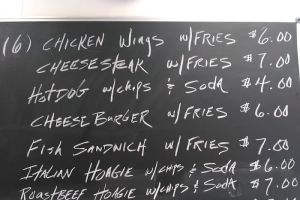 (6) CHICKEN Wings w/FRIES $6.00
CHEESESTEAK w/FRIES $7.00
HOTDOG w/chips & Soda $4.00
CHEESEBURGER w/FRIES $6.00
FISH SANDWICH w/FRIES $7.00
ITALIAN HOAGIE w/chips & Soda $6.00
ROASTBEEF HOAGIE w/CHIPS & SodA $7.00